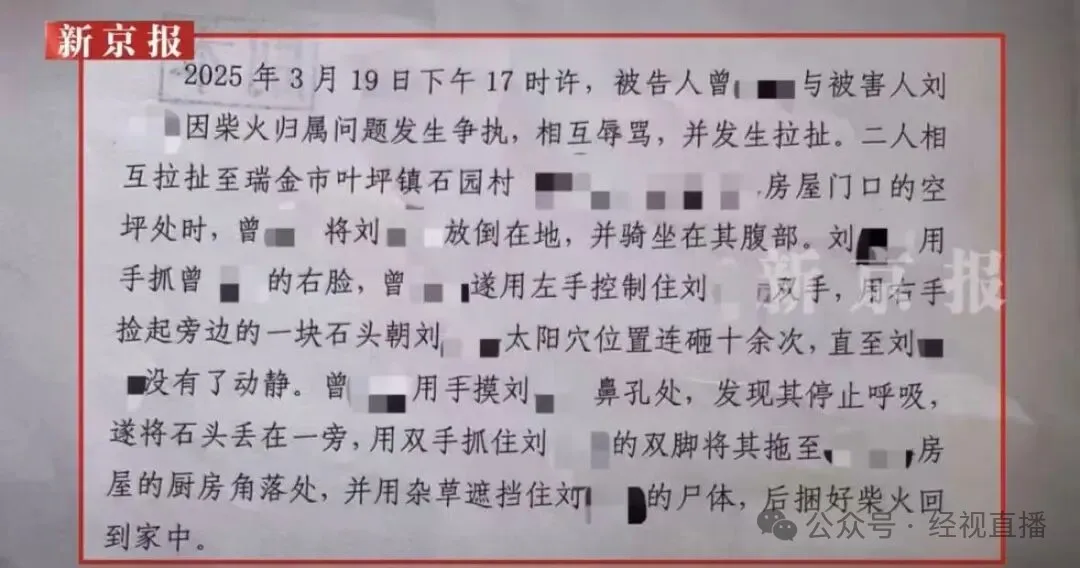 新京报
2025年3月19日下午17时许，被告人曾 与被害人刘
因柴火归属问题发生争执，相互辱骂，并发生拉扯。二人相
互拉扯至瑞金市叶坪镇石园村 房屋门口的空
坪处时，曾 将刘 放倒在地，并骑坐在其腹部。刘 用
手抓曾 的右脸，曾 遂用左手控制住刘 双手，用右手
捡起旁边的一块石头朝刘 太阳穴位置连砸十余次，直至刘
没有了动静。曾 用手摸刘 鼻孔处，发现其停止呼吸，
遂将石头丢在一旁，用双手抓住刘 的双脚将其拖至 房
屋的厨房角落处，并用杂草遮挡住刘 的尸体，后捆好柴火回
到家中。
新京报
公众号·经视直播